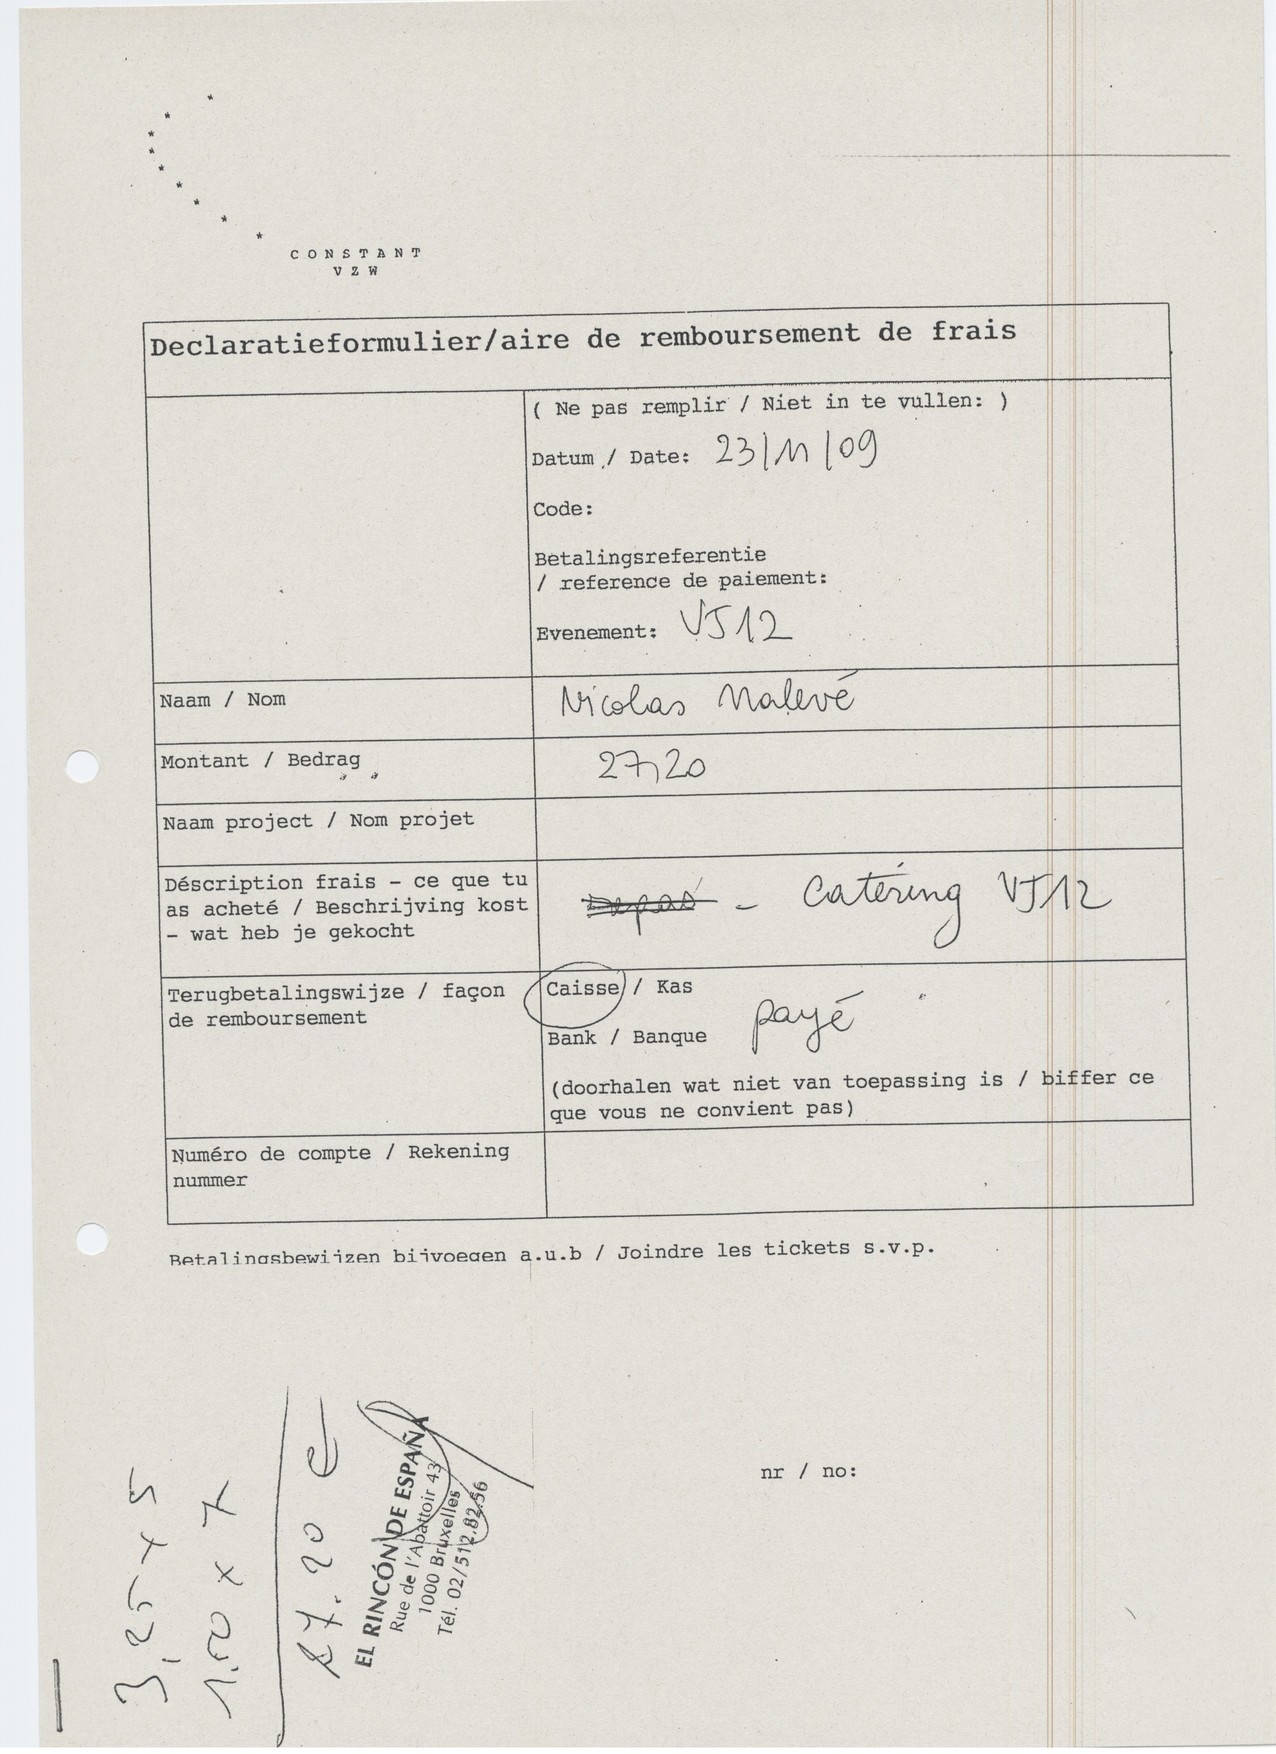 CONSTANT
VZW
Declaratieformulier/aire de remboursement de frais
( Ne pas remplir / Niet in te vullen: )
Datum / Date: 23/11/09
Code:
Betalingsreferentie
/ reference de paiement:
Evenement: VJ12
Naam / Nom
Nicolas Malevé
Montant / Bedrag
27,20
Naam project / Nom projet
Déscription frais - ce que tu
as acheté / Beschrijving kost
- wat heb je gekocht
- Catering VJ12
Terugbetalingswijze / façon
de remboursement
Caisse / Kas
Bank / Banque
payé
(doorhalen wat niet van toepassing is / biffer ce
que vous ne convient pas)
Numéro de compte / Rekening
nummer
Betalingsbewijzen bijvoegen a.u.b / Joindre les tickets s.v.p.
nr / no:
3,25 x 5
1.50 x 7
27.20 €
EL RINCÓN DE ESPAÑA
Rue de l'Abattoir 43
1000 Bruxelles
Tél. 02/512.82.56